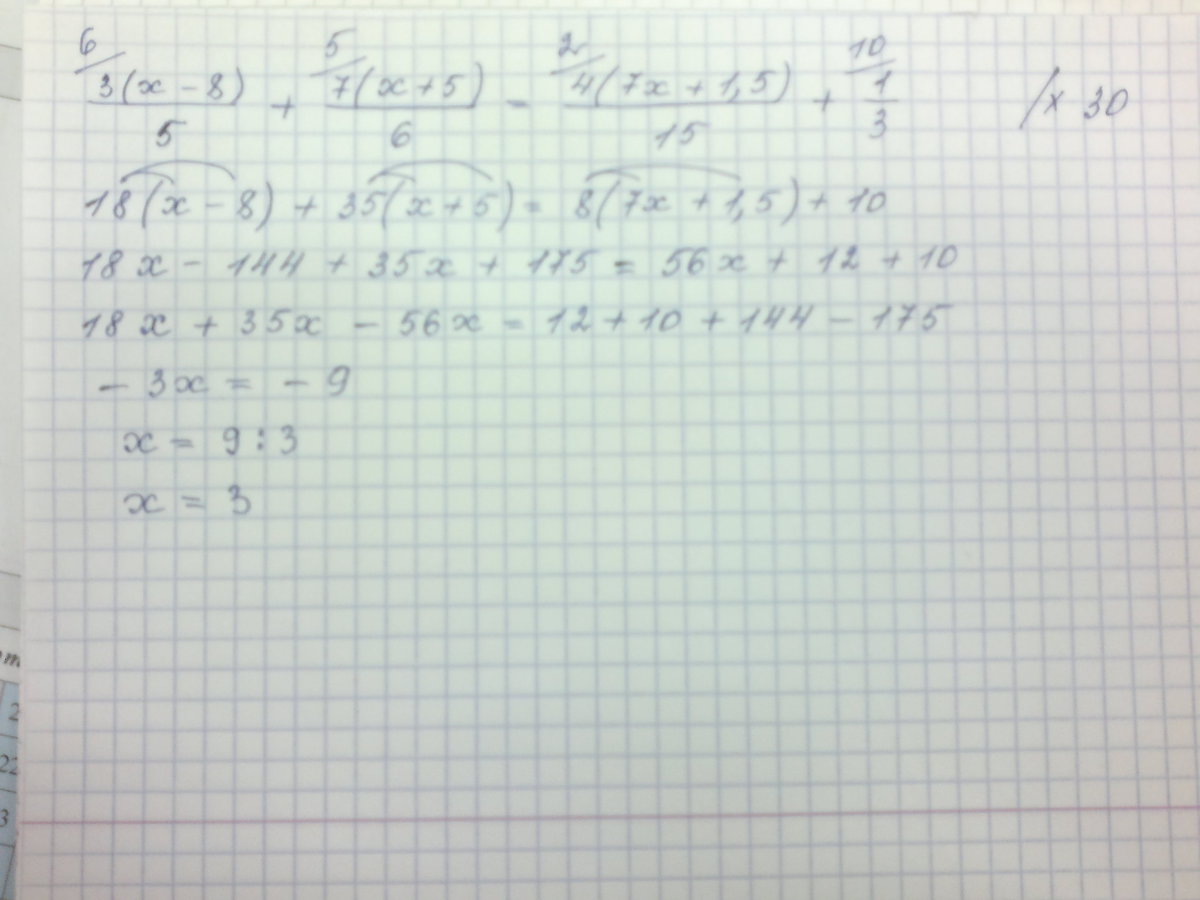 6/ 3(x - 8)/5 + 5/ 7(x + 5)/6 = 2/ 4(7x + 1,5)/15 + 10/ 1/3 /× 30
18(x - 8) + 35(x + 5) = 8(7x + 1,5) + 10
18x - 144 + 35x + 175 = 56x + 12 + 10
18x + 35x - 56x = 12 + 10 + 144 - 175
- 3x = - 9
x = 9 : 3
x = 3
2
22
3